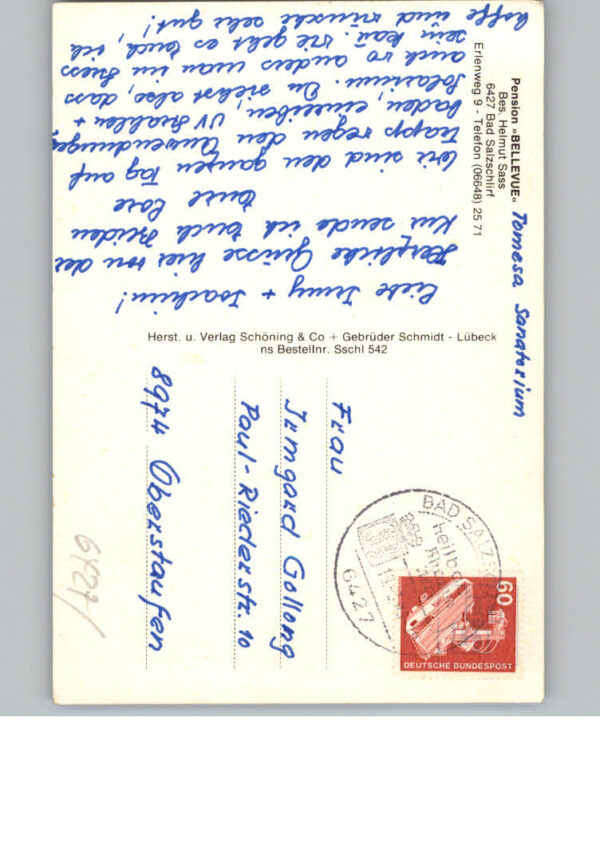 Pension »BELLEVUE«
Bes. Helmut Sass
6427 Bad Salzschlirf
Erlenweg 9 - Telefon (06648) 25 71
Tomesa Sanatorium
Liebe Irmg + Joachim!
Herzliche Grüsse hier von der
Kur sende ich Euch beiden
Eure Lore
Wir sind den ganzen Tag auf
Trapp wegen den Anwendungen,
baden, einreiben, UV Strahlen +
Solarium. Du siehst also, dass
auch wo anders man im Stress
sein kan. Wie geht es Euch, ich
hoffe und wünsche sehr gut!
Herst. u. Verlag Schöning & Co + Gebrüder Schmidt - Lübeck
ns Bestellnr. Sschl 542
Frau
Irmgard Gollong
Paul-Riederstr. 10
8974 Oberstaufen
6427/
BAD SALZSC
heilba
6427
60
DEUTSCHE BUNDESPOST